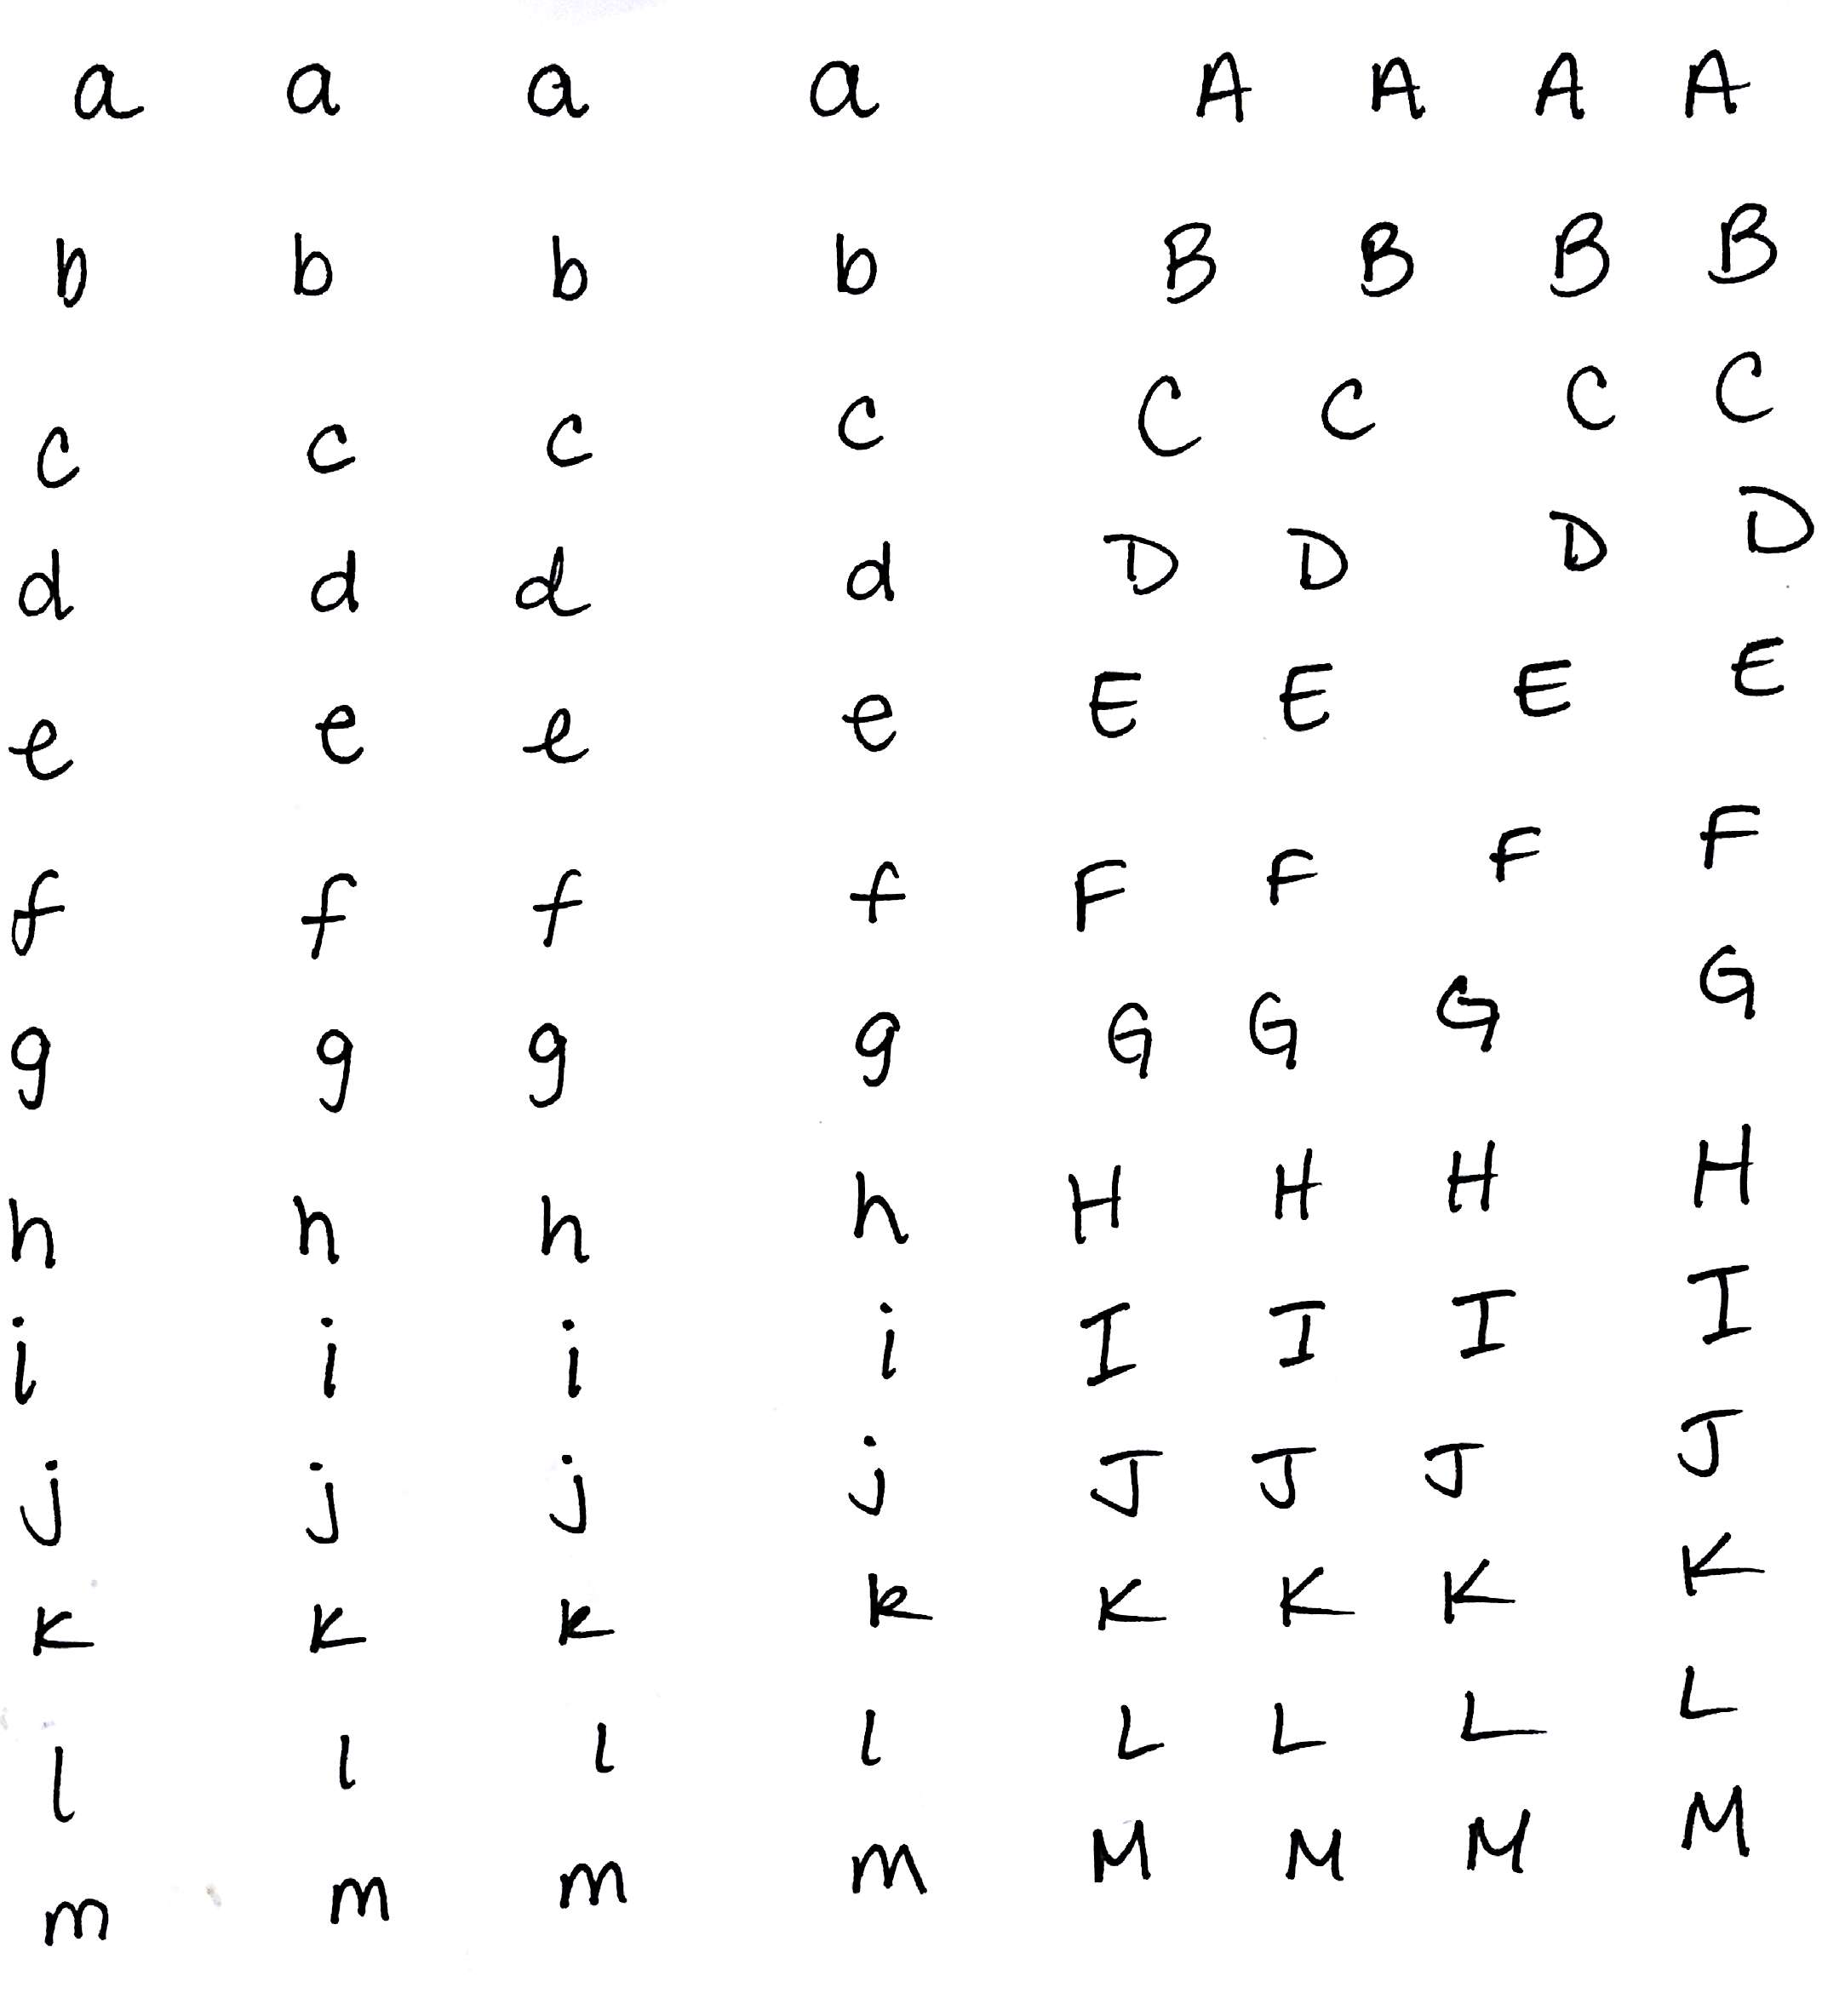 a a a a A A A A
b b b b B B B B
c c c c C C C C
d d d d D D D D
e e e e E E E E
f f f f F F F F
g g g g G G G G
h h h h H H H H
i i i i I I I I
j j j j J J J J
k k k k K K K K
l l l l L L L L
m m m m M M M M